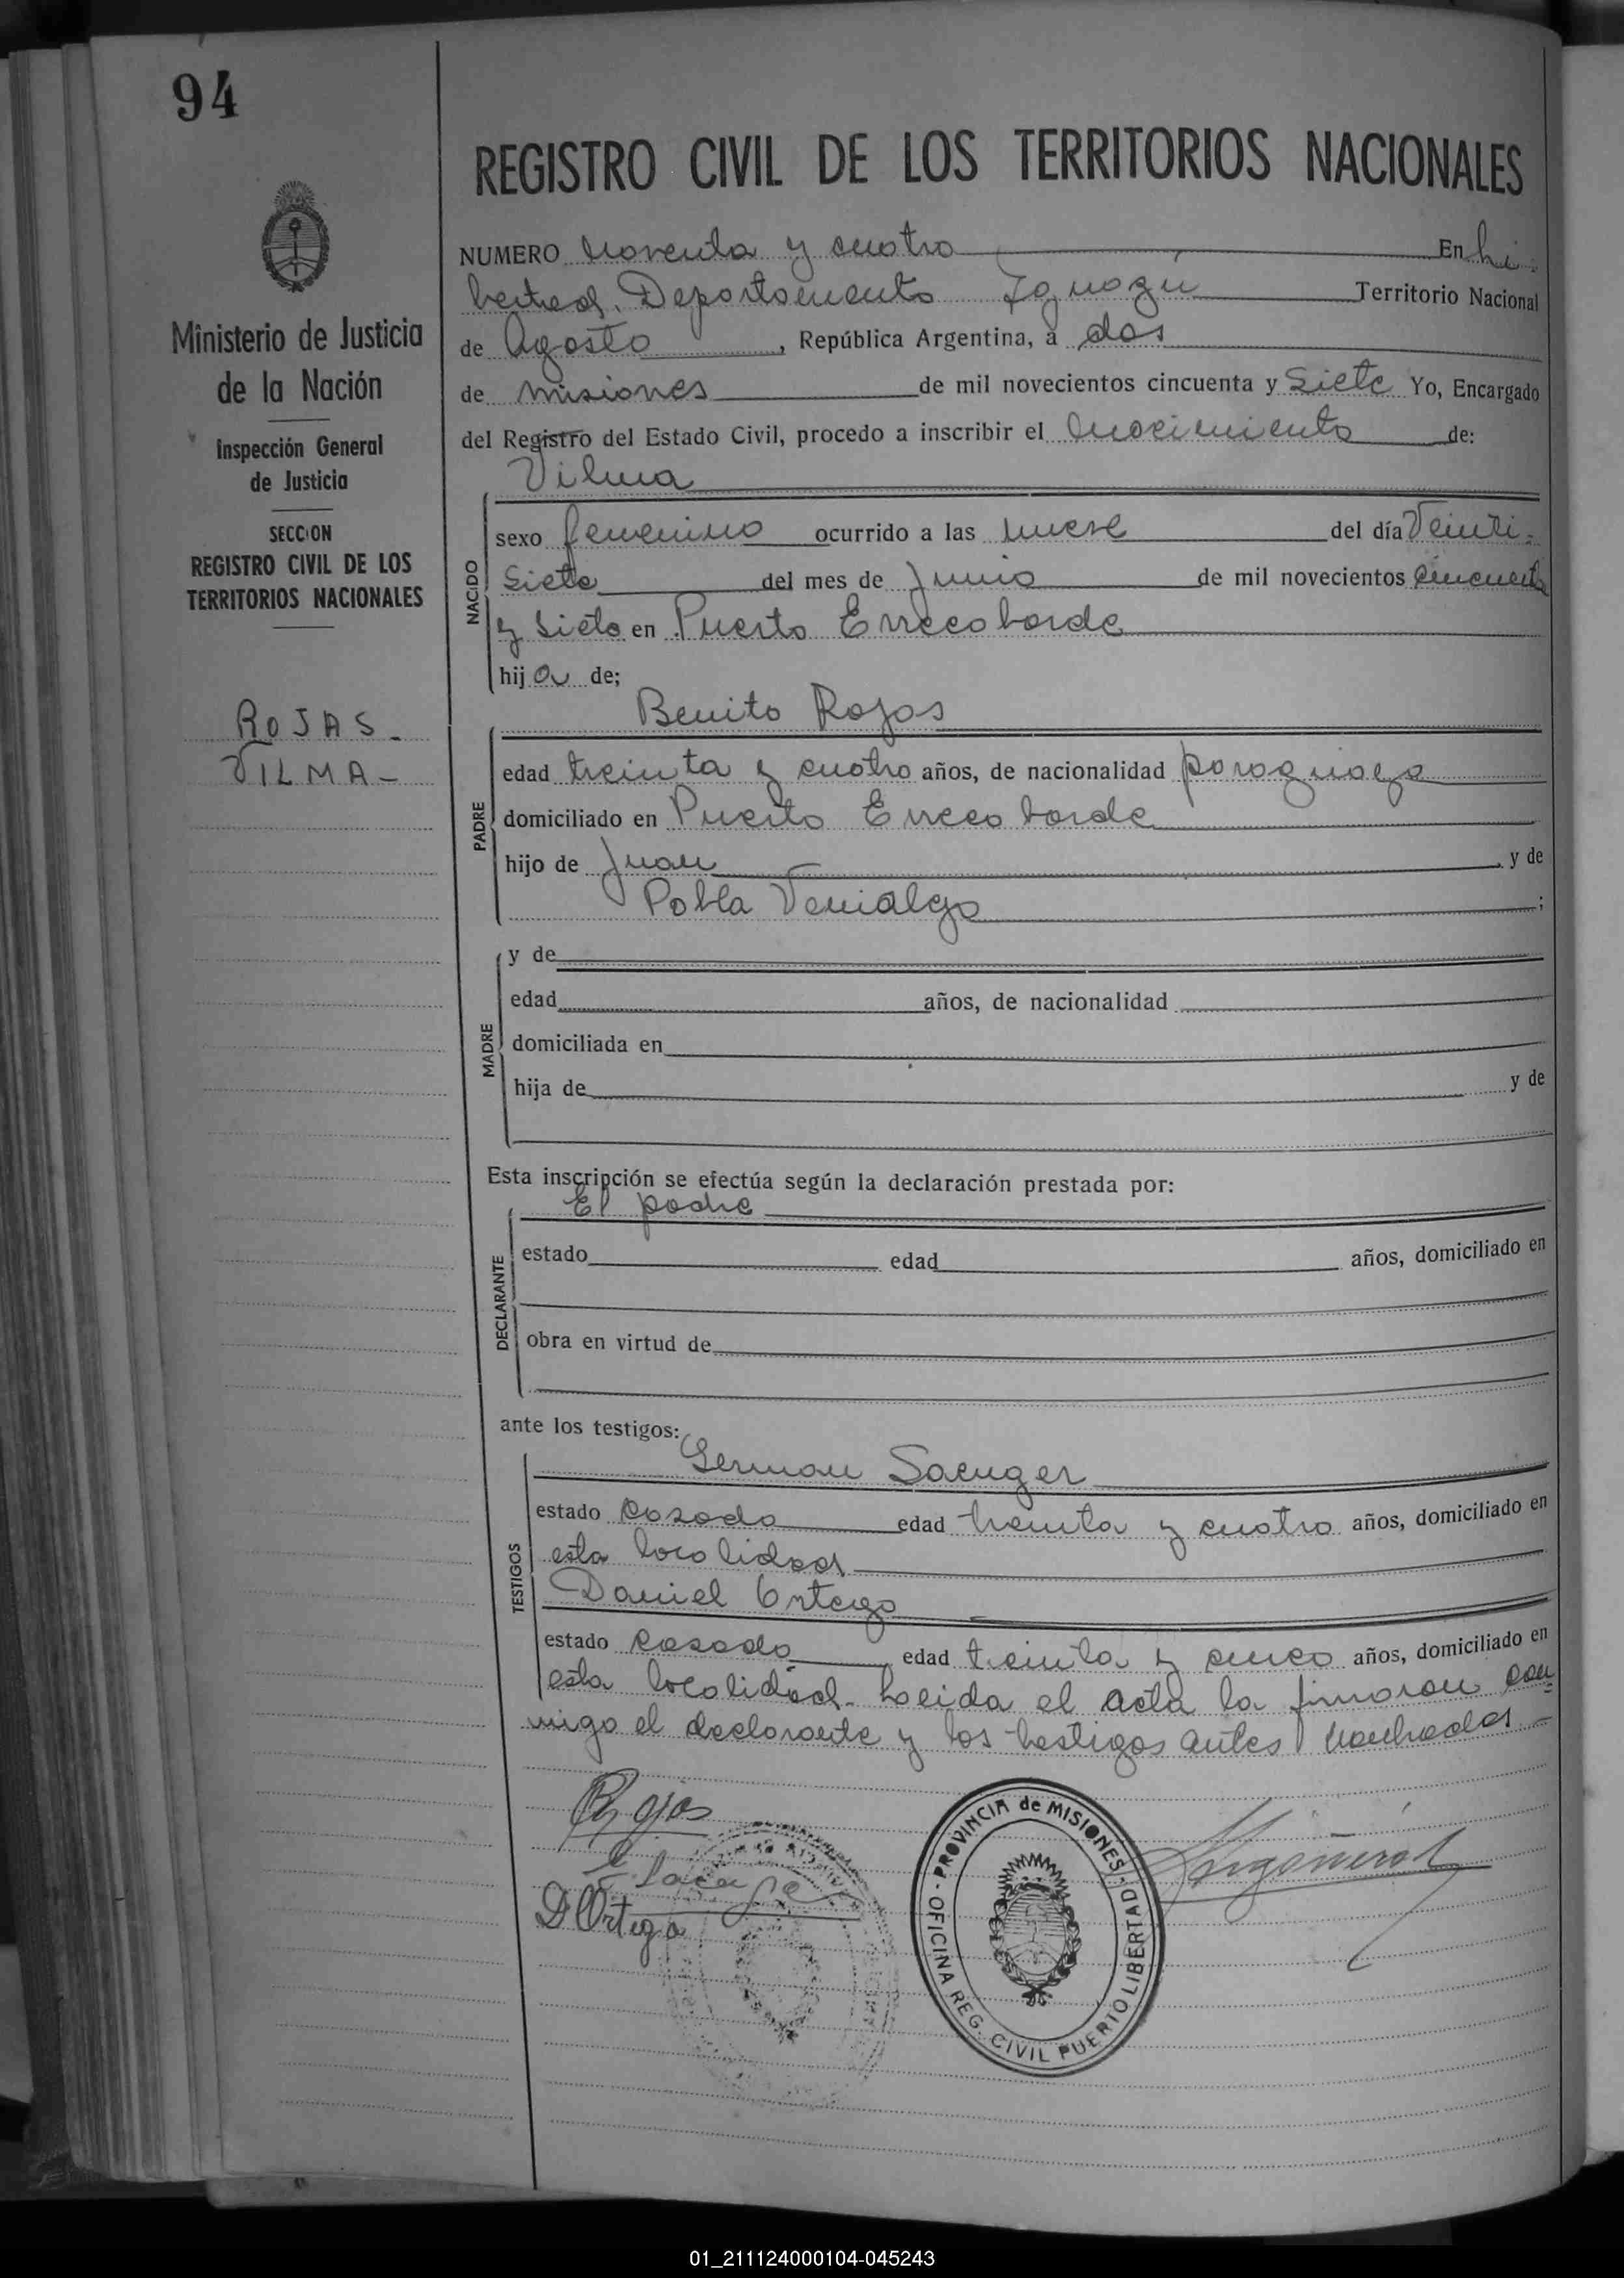 94
REGISTRO CIVIL DE LOS TERRITORIOS NACIONALES
Ministerio de Justicia
de la Nación
Inspección General
de Justicia
SECCION
REGISTRO CIVIL DE LOS
TERRITORIOS NACIONALES
ROJAS.
VILMA-
NUMERO Noventa y cuatro En Li-
bertad. Departamento Iguazú Territorio Nacional
de Agosto, República Argentina, a dos
de misiones de mil novecientos cincuenta y Siete Yo, Encargado
del Registro del Estado Civil, procedo a inscribir el nacimiento de:
Vilma
NACIDO
sexo femenino ocurrido a las nueve del día Veinti-
Siete del mes de Junio de mil novecientos cincuenta
y Siete en Puerto Errecaborde
hija de;
Benito Rojas
PADRE
edad treinta y cuatro años, de nacionalidad paraguaya
domiciliado en Puerto Errecaborde
hijo de Juan y de
Pabla Venialgo;
MADRE
y de
edad años, de nacionalidad
domiciliada en
hija de y de
Esta inscripción se efectúa según la declaración prestada por:
El padre
DECLARANTE
estado edad años, domiciliado en
obra en virtud de
ante los testigos:
German Saenger
TESTIGOS
estado Casado edad treinta y cuatro años, domiciliado en
esta localidad
Daniel Ortega
estado Casado edad treinta y cinco años, domiciliado en
esta localidad- Leida el acta la firmaron con
migo el declarante y los testigos antes nombrados-
Rojas
D Ortega
PROVINCIA de MISIONES
OFICINA REG. CIVIL PUERTO LIBERTAD
01_211124000104-045243